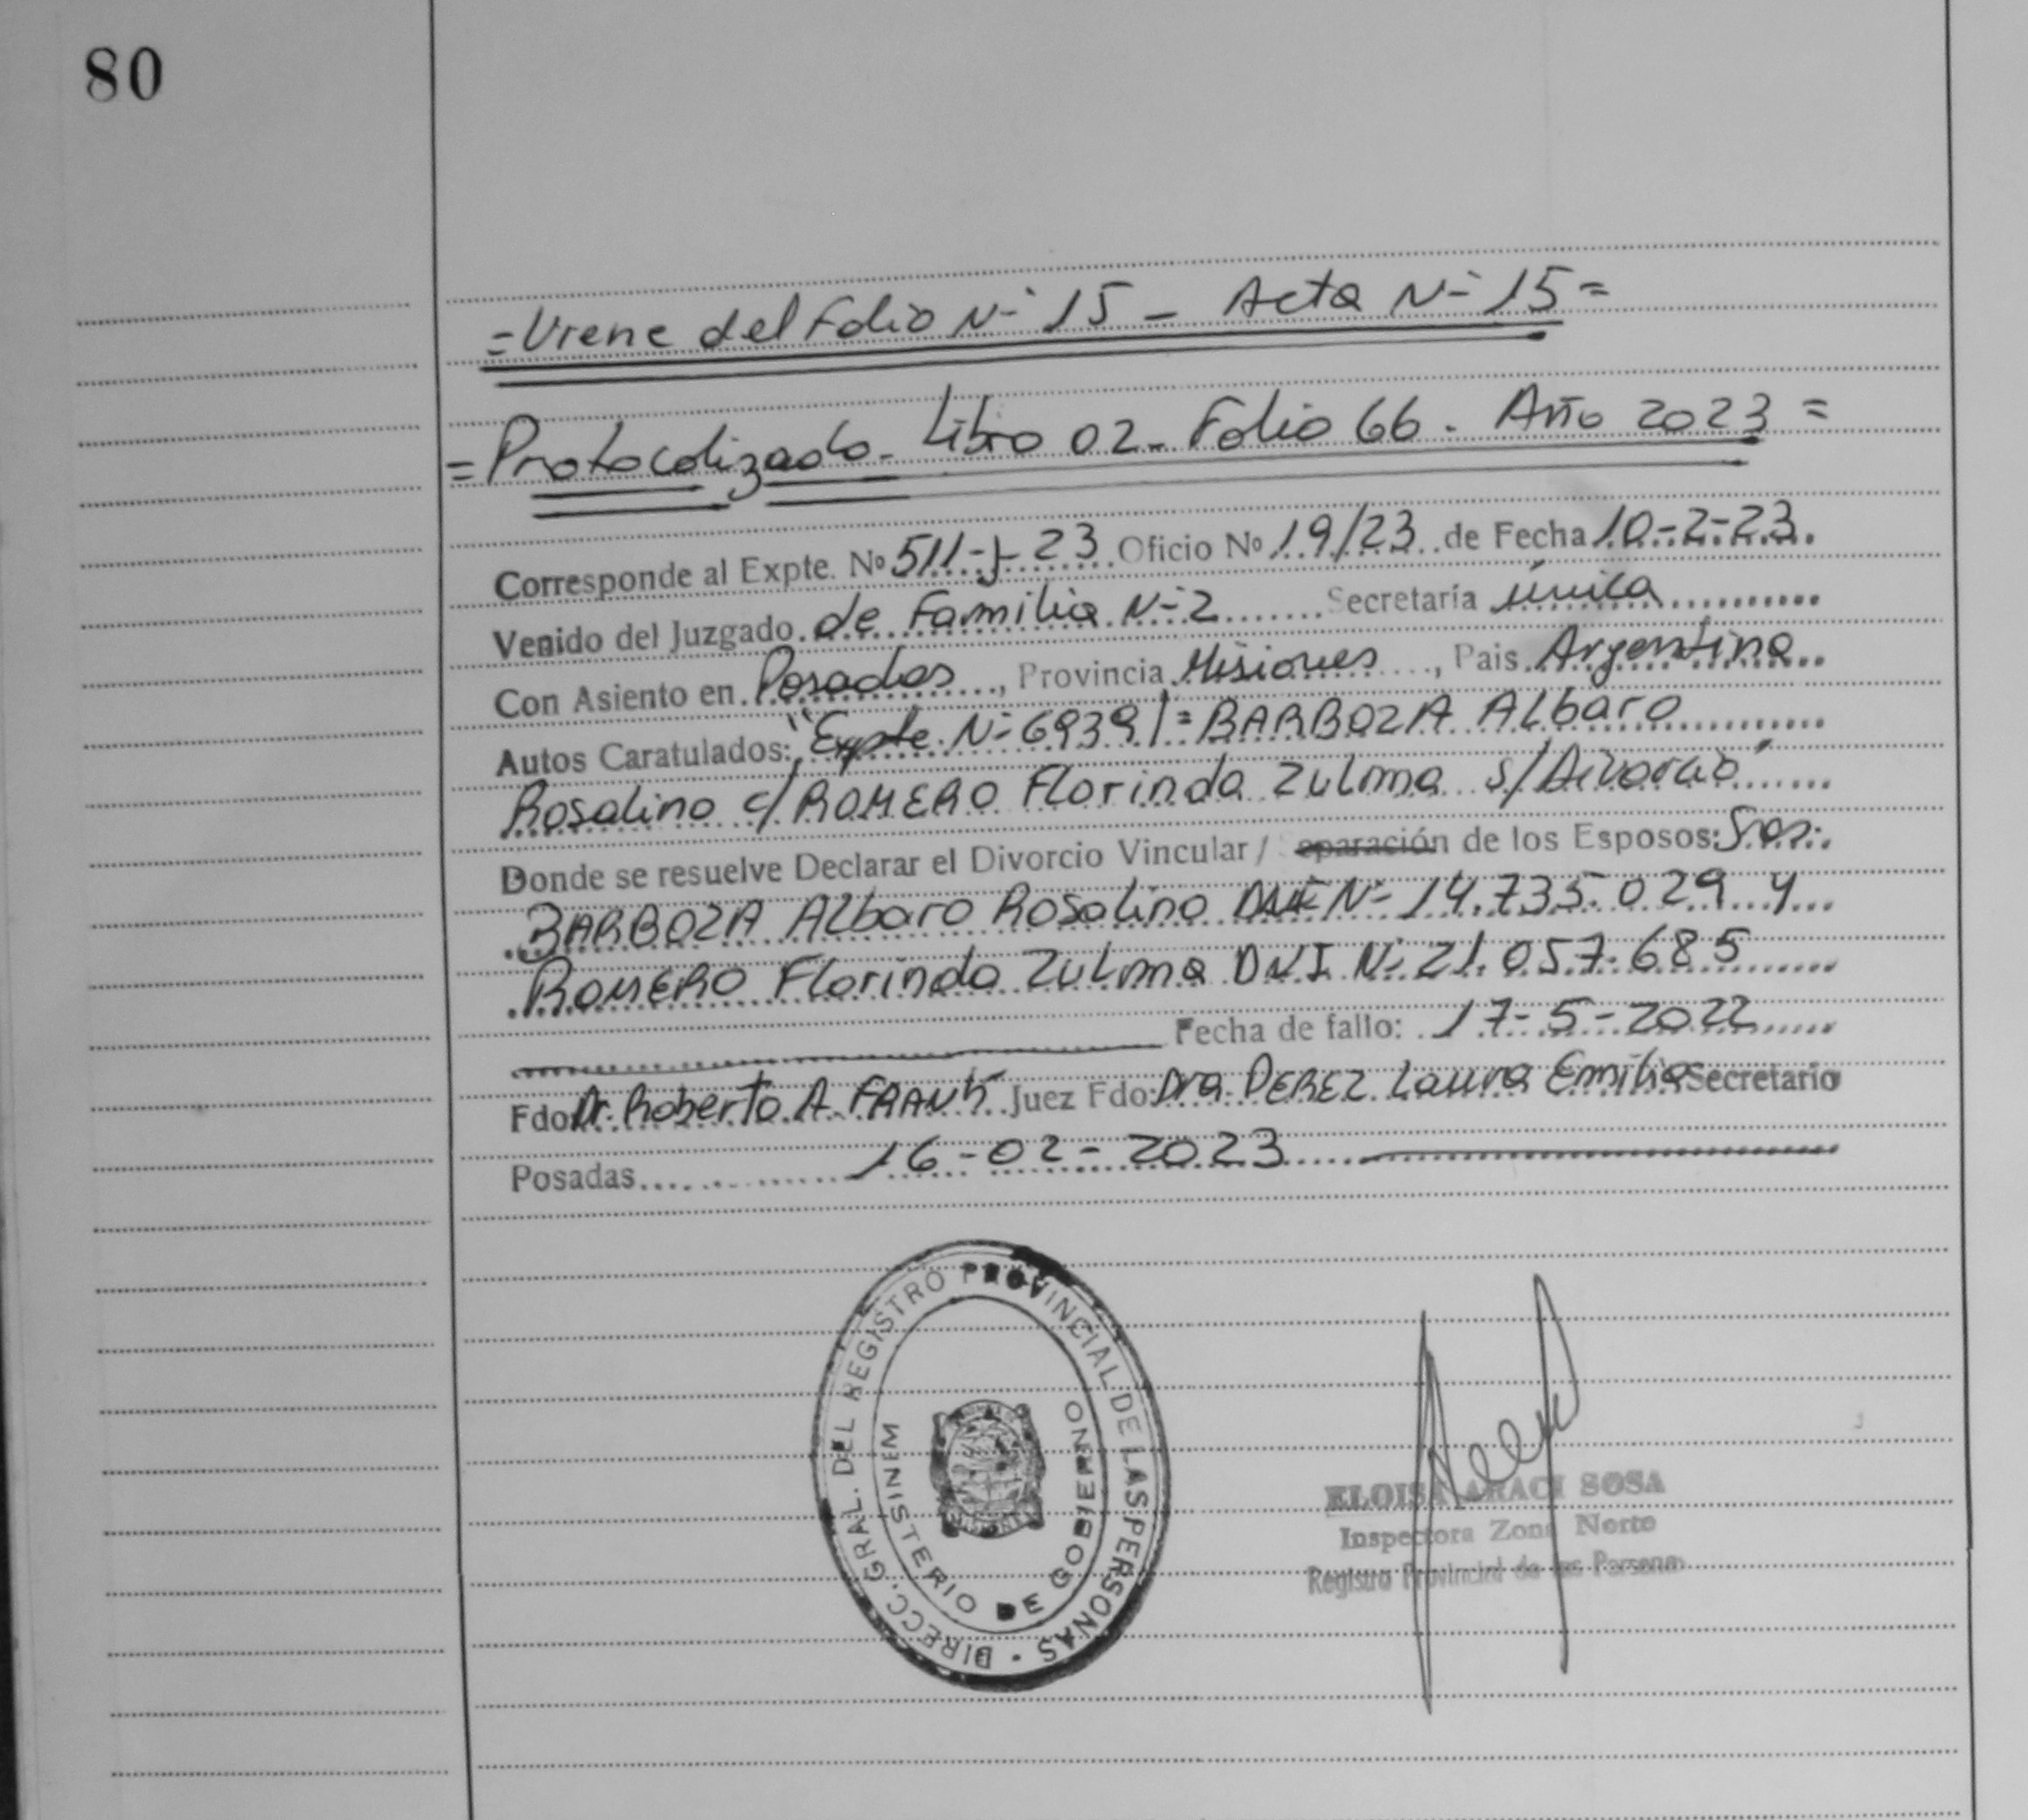 80
=Viene del Folio Nº 15 - Acta Nº 15=
=Protocolizado. Libro 02. Folio 66. Año 2023=
Corresponde al Expte. Nº 511-J-23 Oficio Nº 19/23 de Fecha 10-2-23.
Venido del Juzgado de Familia Nº 2 Secretaría única
Con Asiento en Posadas, Provincia Misiones, Pais Argentina
Autos Caratulados: "Expte Nº 6939/= BARBOZA Albaro
Rosalino c/ ROMERO Florinda Zulma s/Divorcio"
Donde se resuelve Declarar el Divorcio Vincular / Separación de los Esposos: Sres.
BARBOZA Albaro Rosalino DNI Nº 14.735.029 y
ROMERO Florinda Zulma DNI Nº 21.057.685
Fecha de fallo: 17-5-2022
Fdo Dr. Roberto A. Juez Fdo: Dra. PEREZ Laura Emilia Secretario
Posadas 16-02-2023
DIRECC. GRAL. DEL REGISTRO PROVINCIAL DE LAS PERSONAS
MINISTERIO DE GOBIERNO
ELOISA ARACI SOSA
Inspectora Zona Norte
Registro Provincial de las Personas